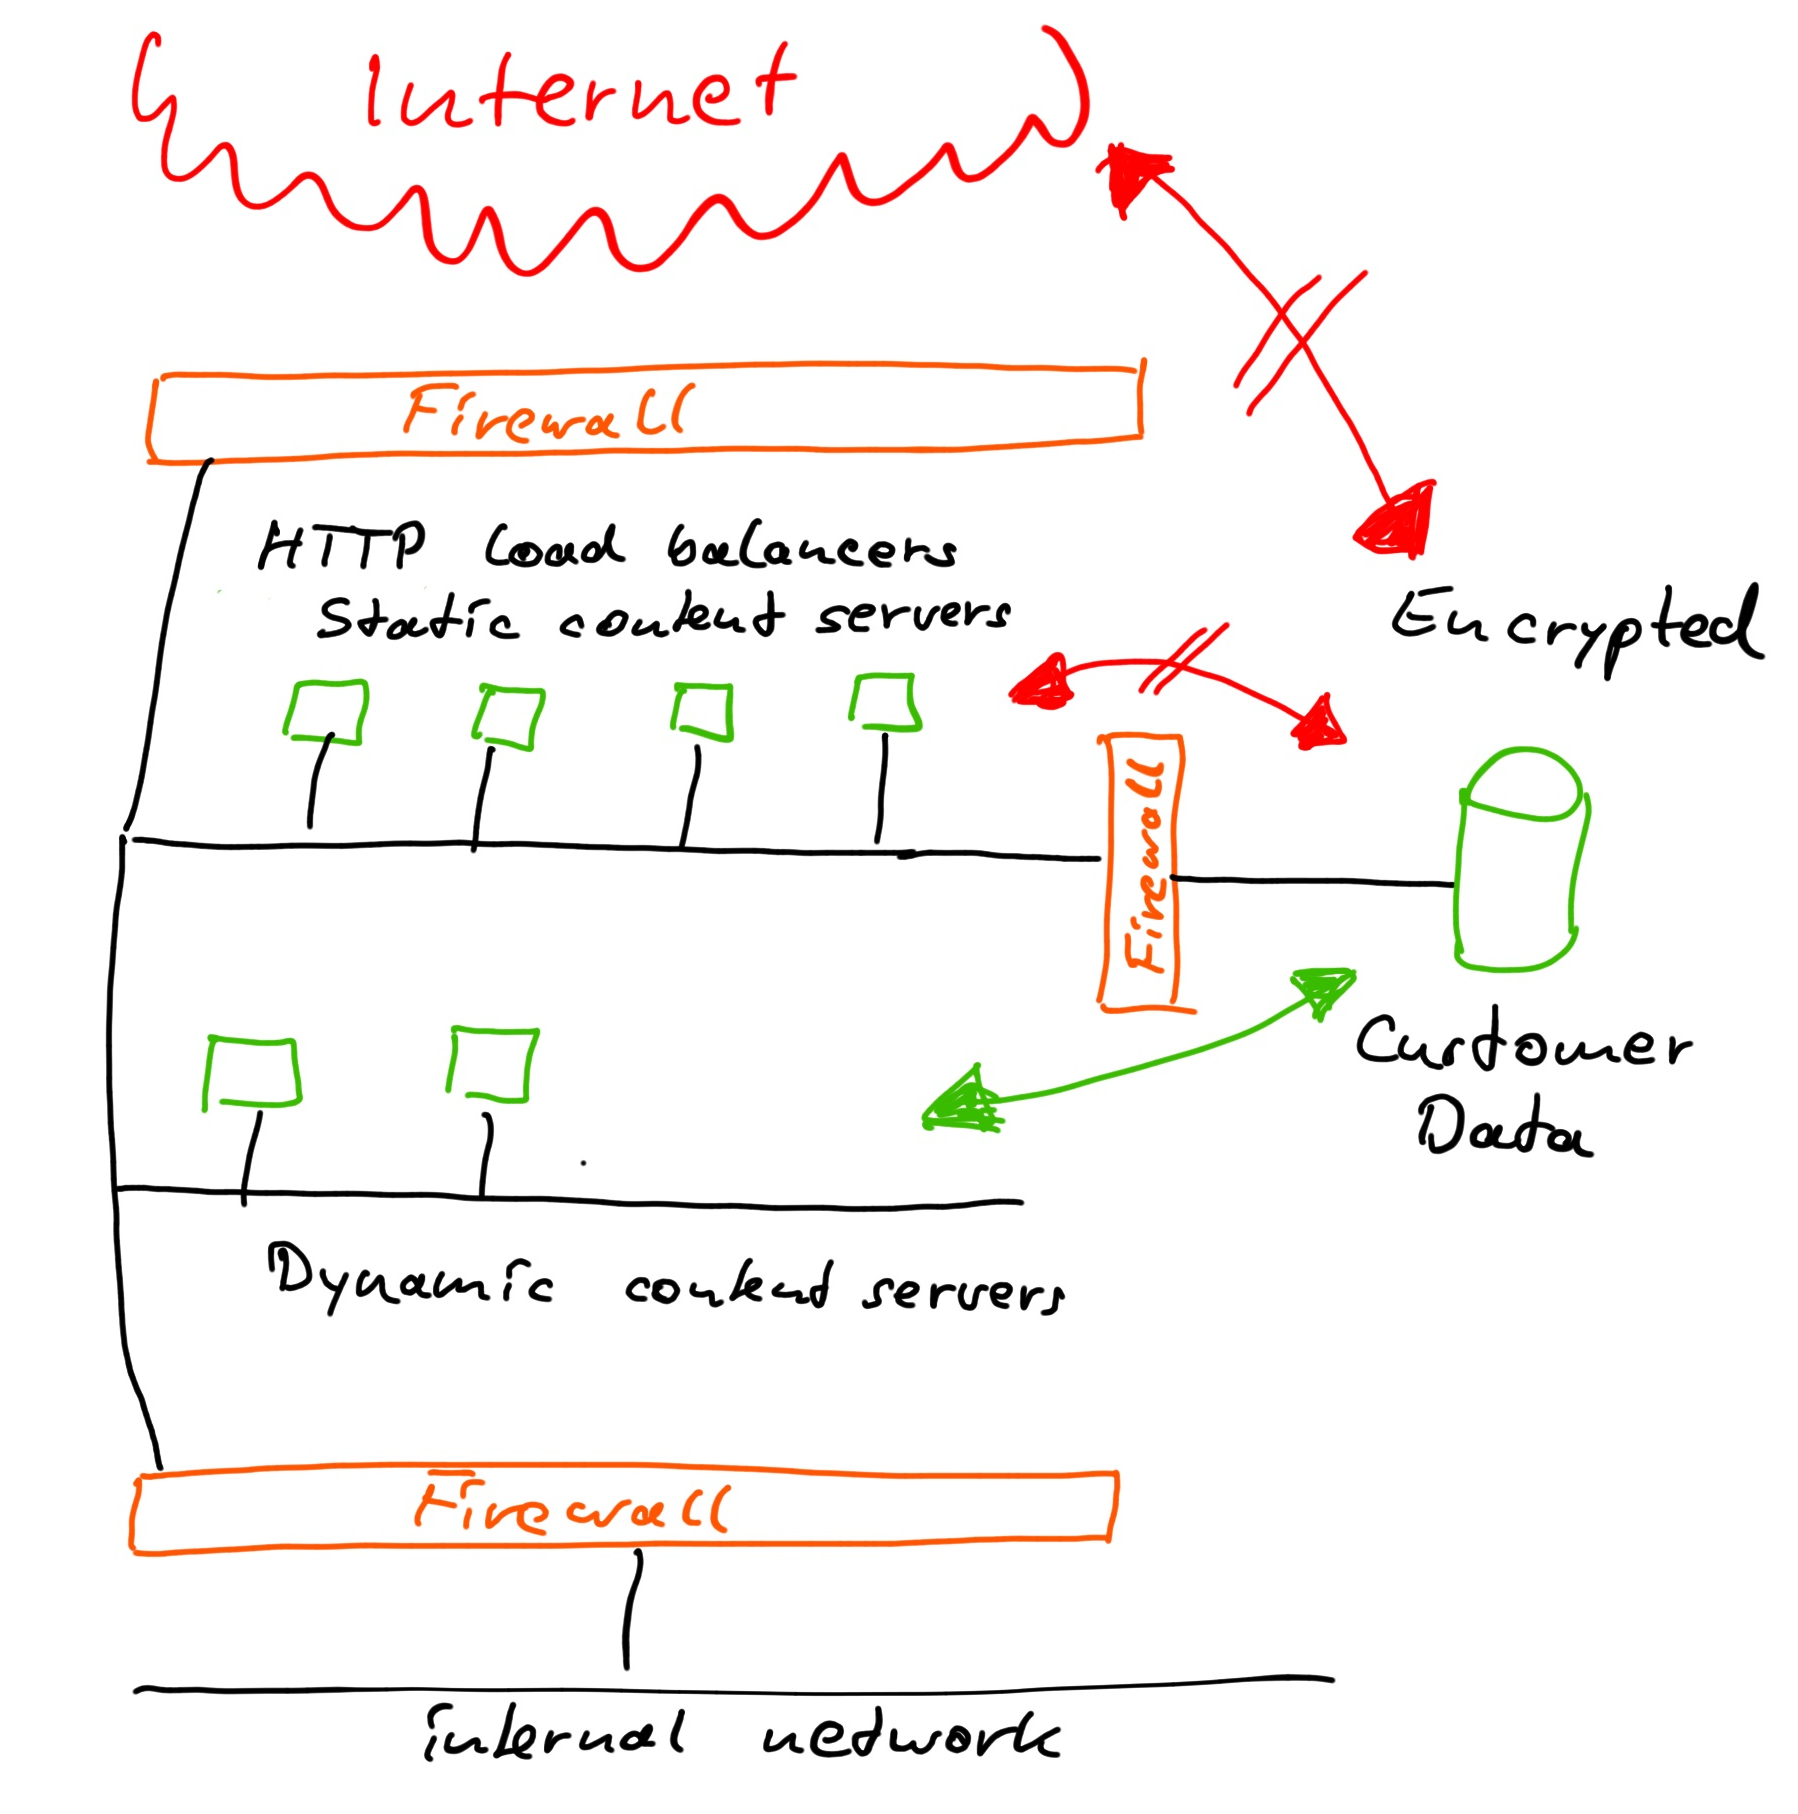 Internet
Firewall
HTTP Load balancers
Static content servers
Encrypted
Firewall
Customer
Data
Dynamic content servers
Firewall
internal network